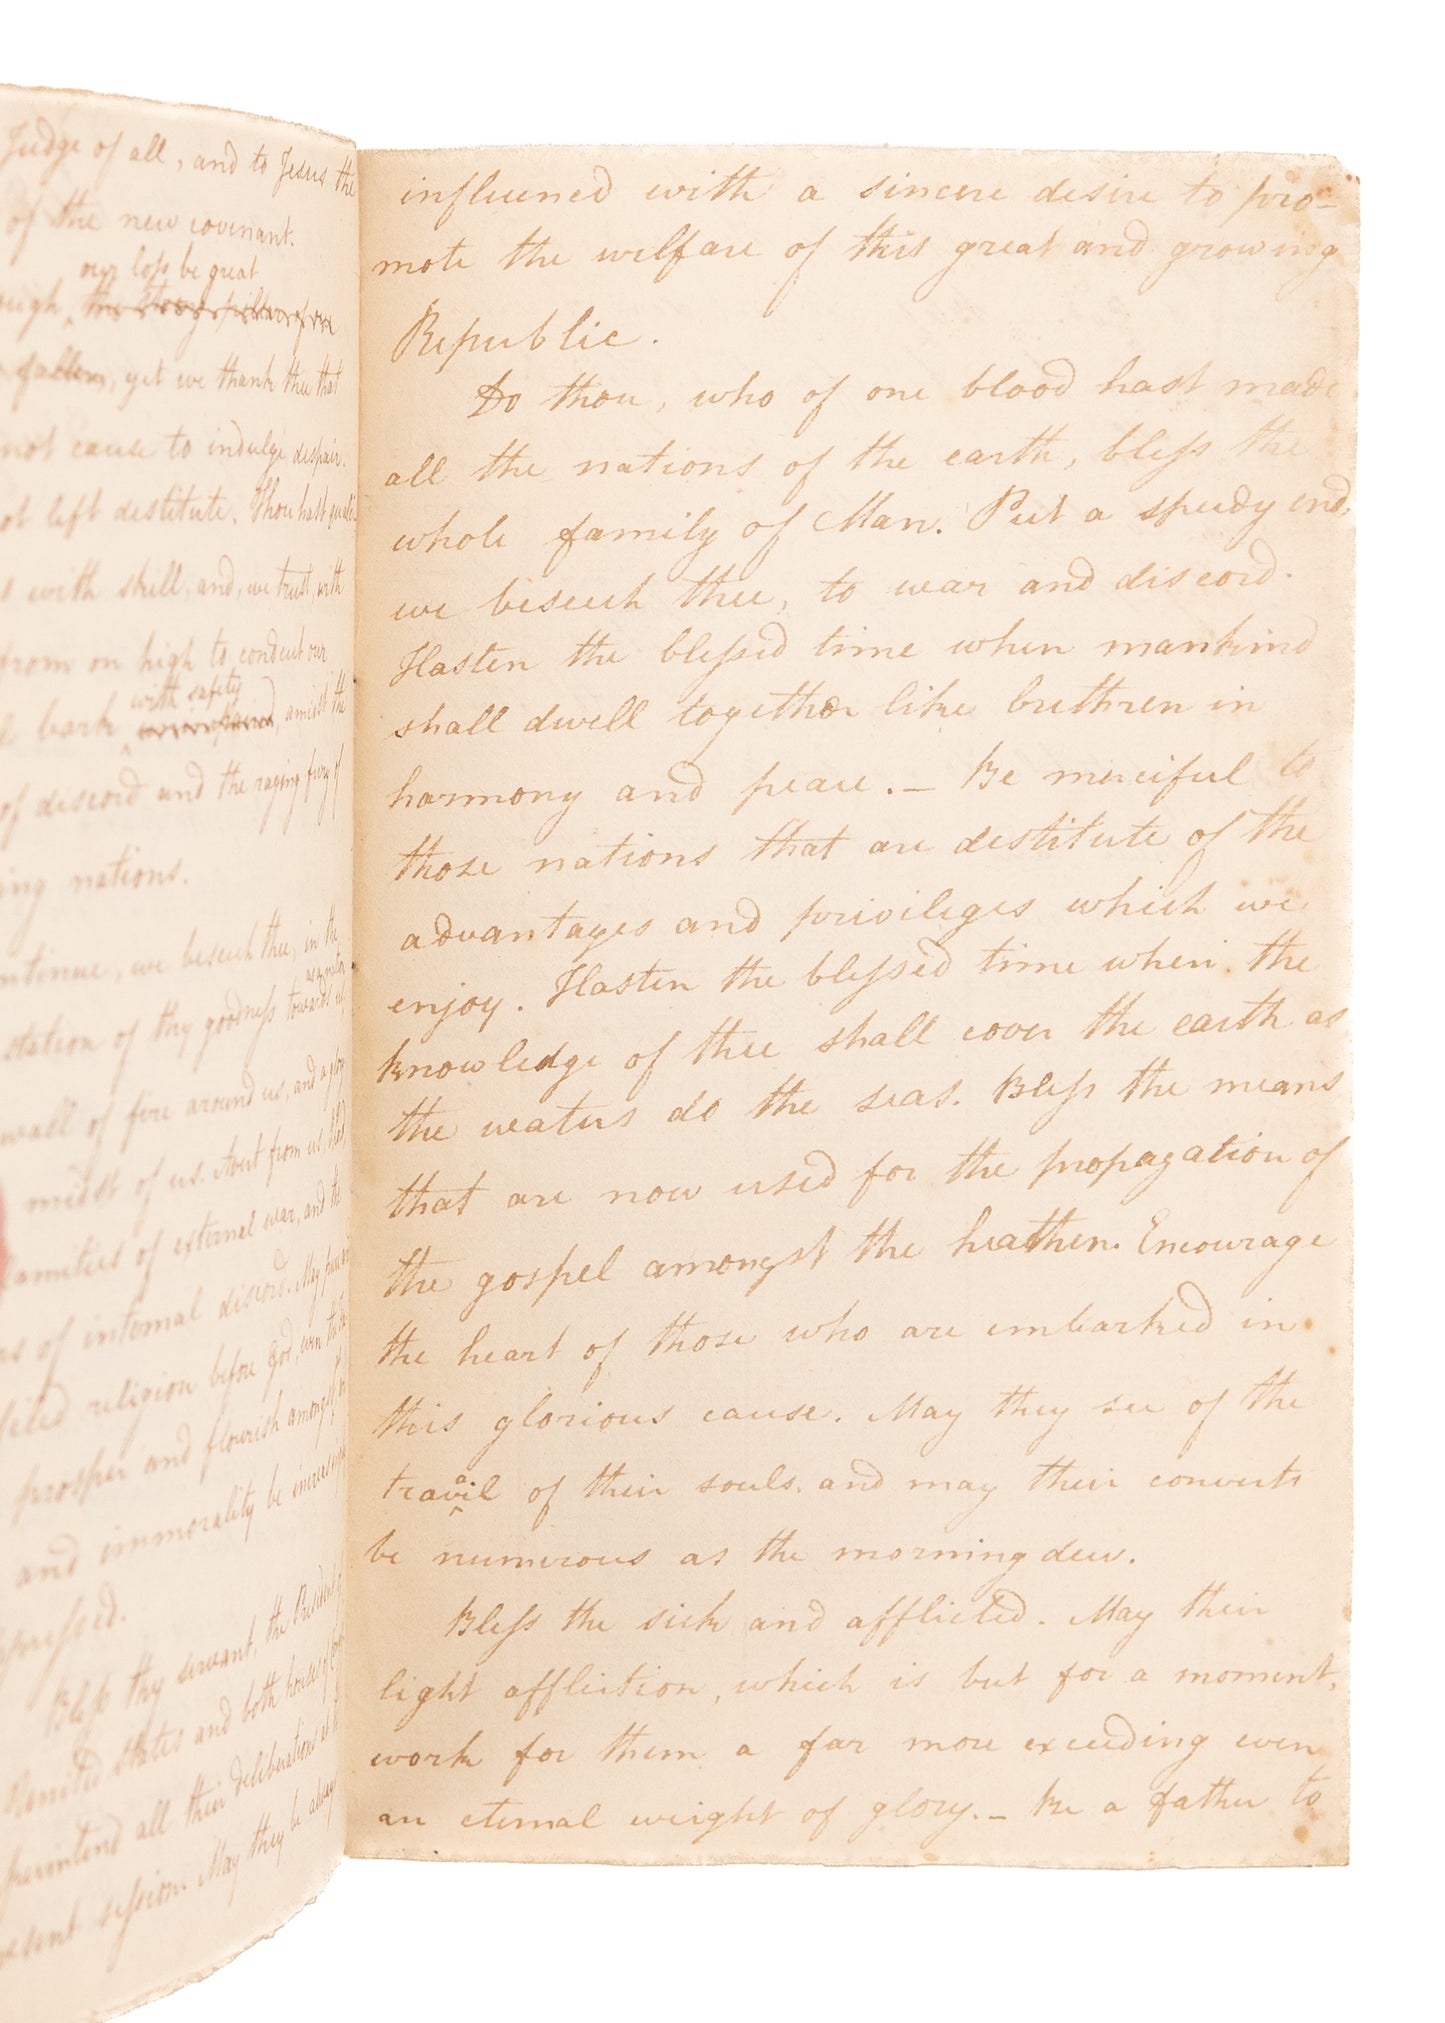 Judge of all, and to Jesus the
of the new covenant.
our loss be great
yet we thank thee that
not cause to indulge despair.
left destitute. Thou hast
with skill, and, we trust, with
from on high to conduct our
with safety
bark amidst the
of discord and the raging fury of
nations.
we beseech thee, in the
of thy goodness towards us,
wall of fire around us, and a glory
midst of us. Avert from us, the
of external war, and the
of internal discord. May pure and
religion before God, even the
prosper and flourish amongst
and immorality be
Bless thy servant, the President of
United States and both houses of
all their deliberations at
session. May they be always
influened with a sincere desire to pro-
mote the welfare of this great and growing
Republic.
Do thou, who of one blood hast made
all the nations of the earth, bless the
whole family of Man. Put a speedy end,
we beseech thee, to war and discord.
Hasten the blessed time when mankind
shall dwell together like brethren in
harmony and peace. — Be merciful to
those nations that are destitute of the
advantages and privileges which we
enjoy. Hasten the blessed time when the
knowledge of thee shall cover the earth as
the waters do the seas. Bless the means
that are now used for the propagation of
the gospel amongst the heathen. Encourage
the heart of those who are embarked in
this glorious cause. May they see of the
travail of their souls, and may their converts
be numerous as the morning dew.
Bless the sick and afflicted. May their
light affliction, which is but for a moment,
work for them a far more exceeding even
an eternal weight of glory. — Be a father to